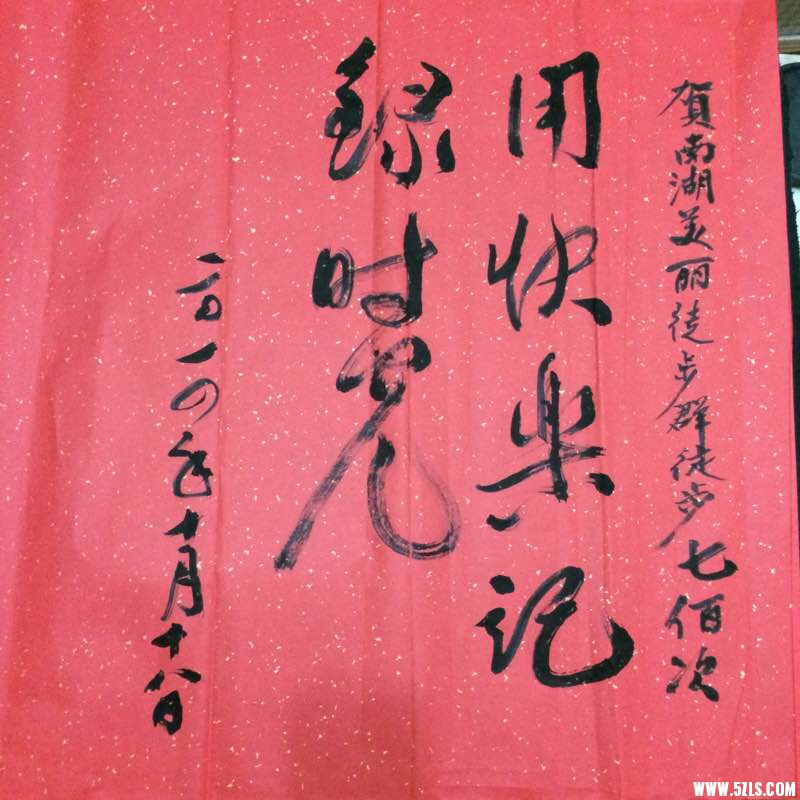 贺南湖美丽徒步群徒步七佰次
用快乐记
録时光
二〇一四年十月十八日
WWW.5ZLS.COM